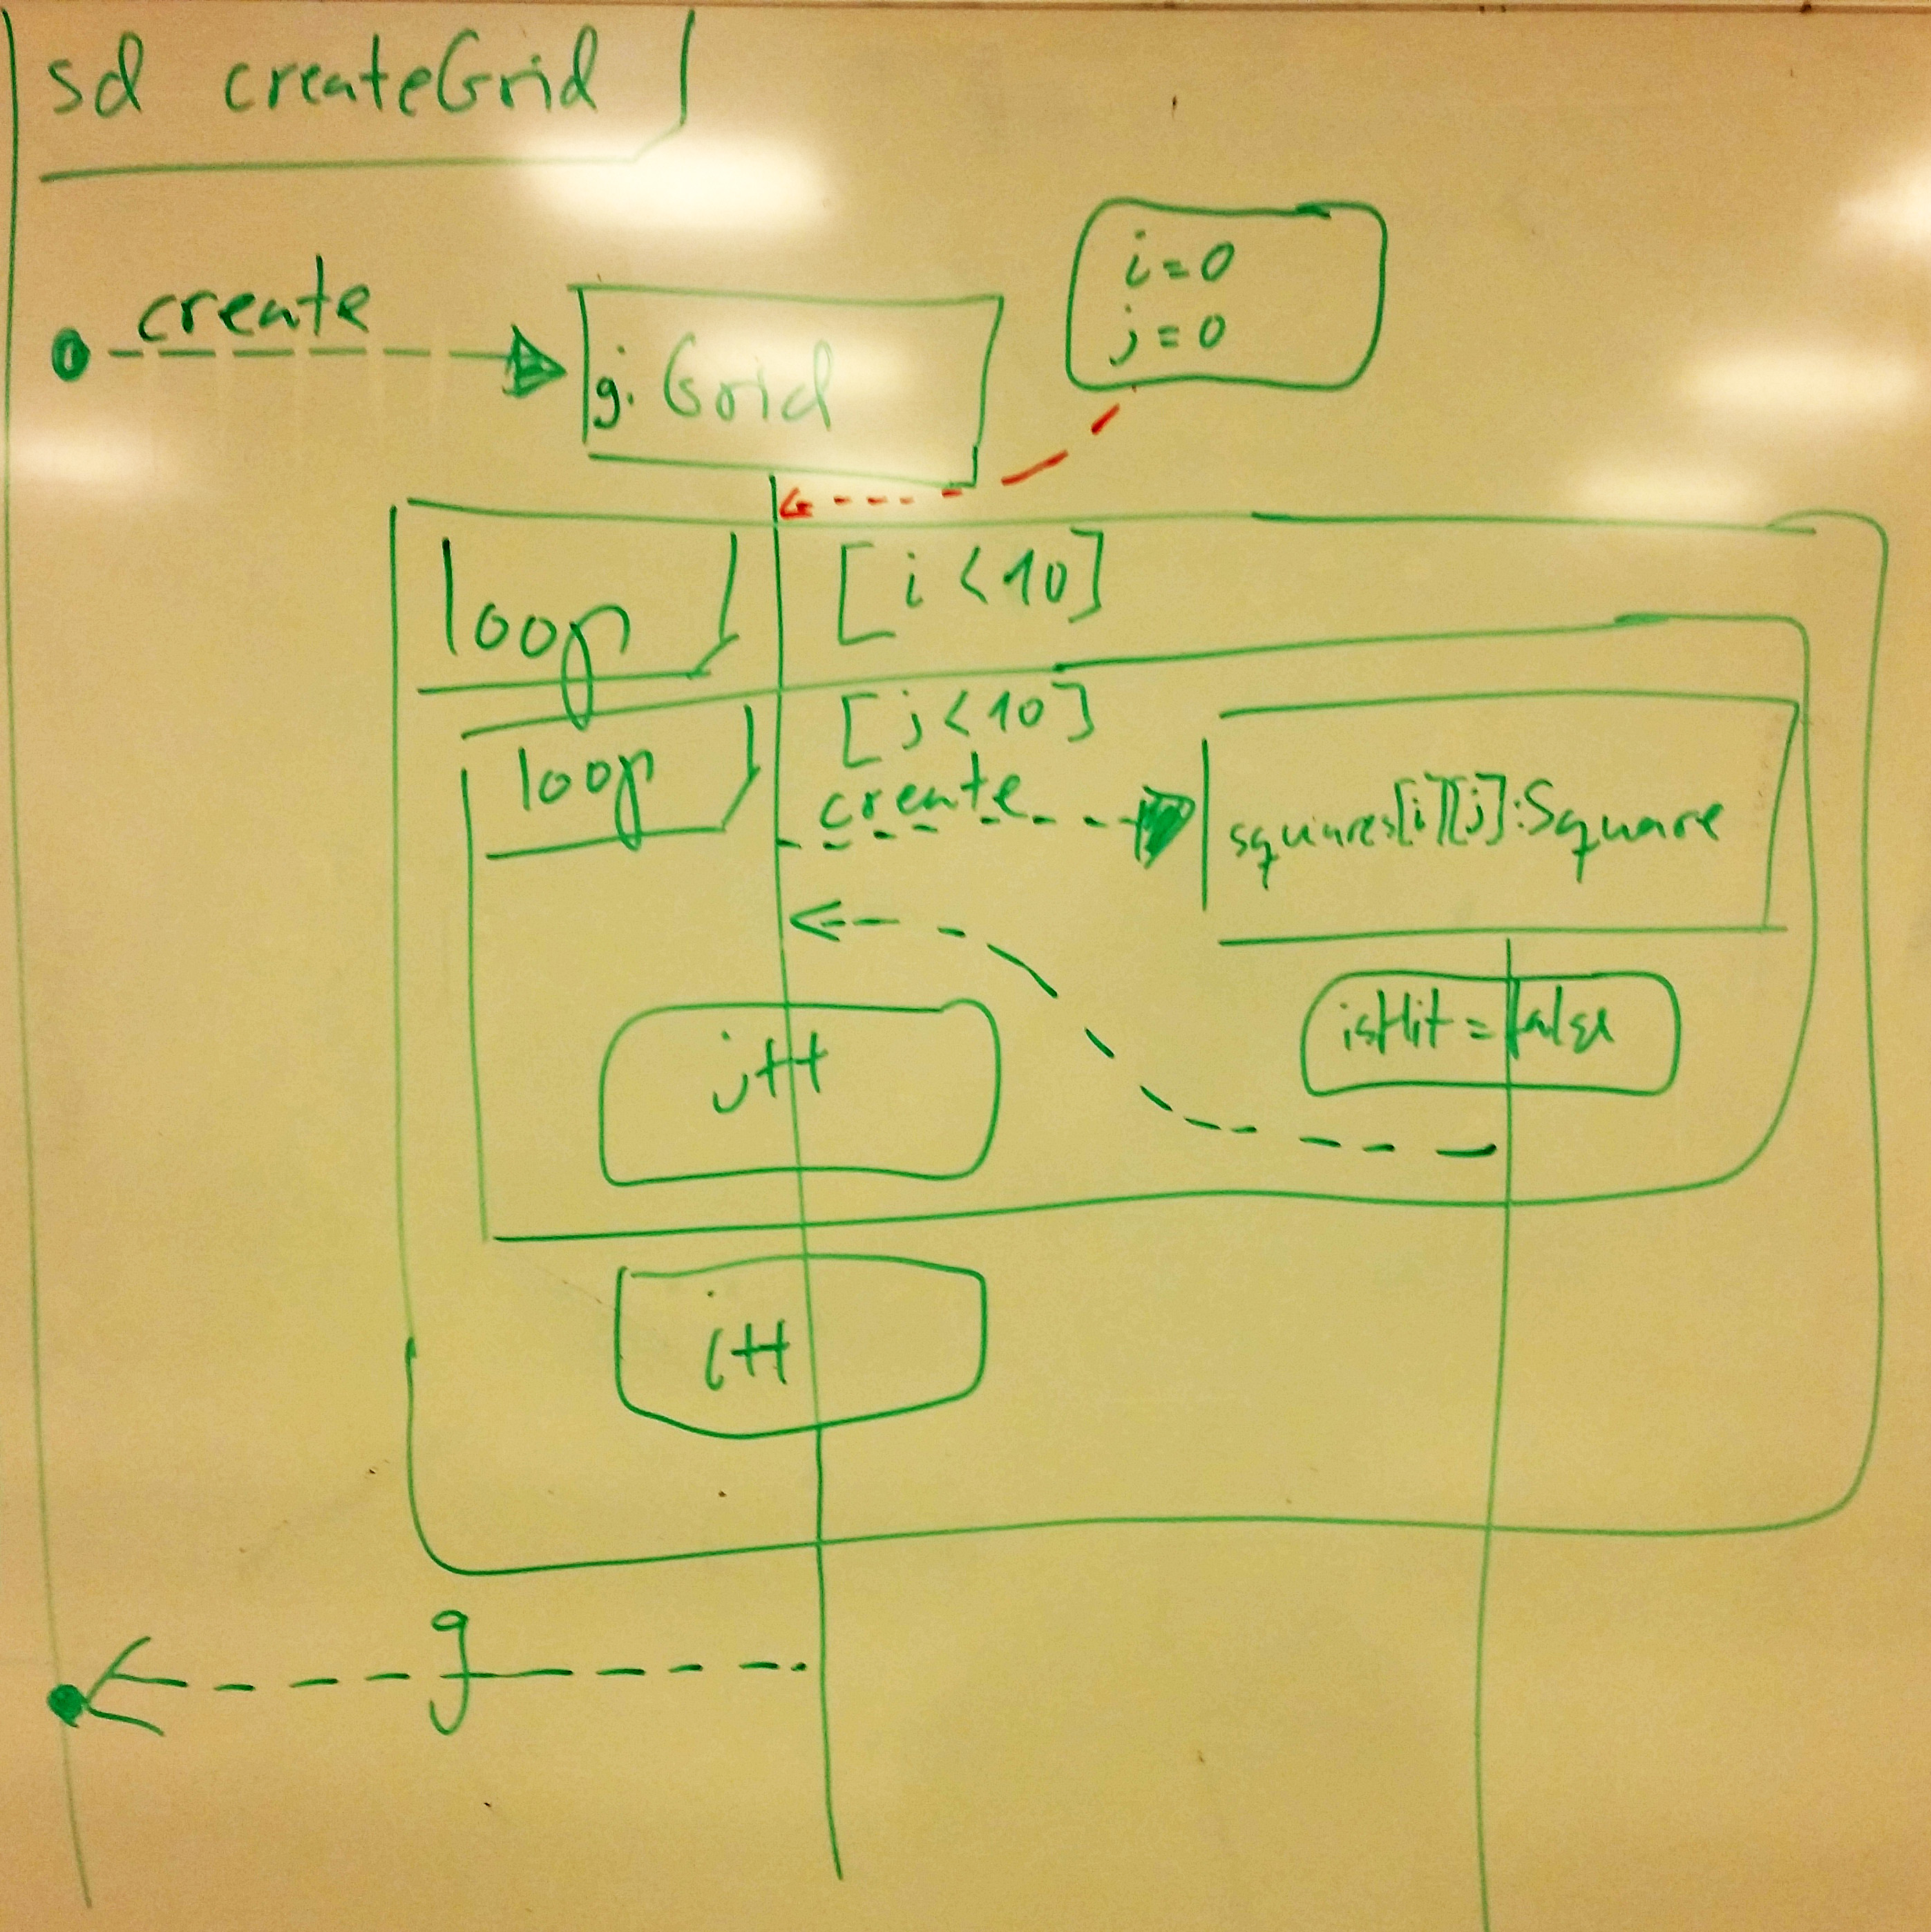 sd createGrid
create
g: Grid
i=0
j=0
loop
[i<10]
loop
[j<10]
create
squares[i][j]:Square
isHit = false
j++
i++
g